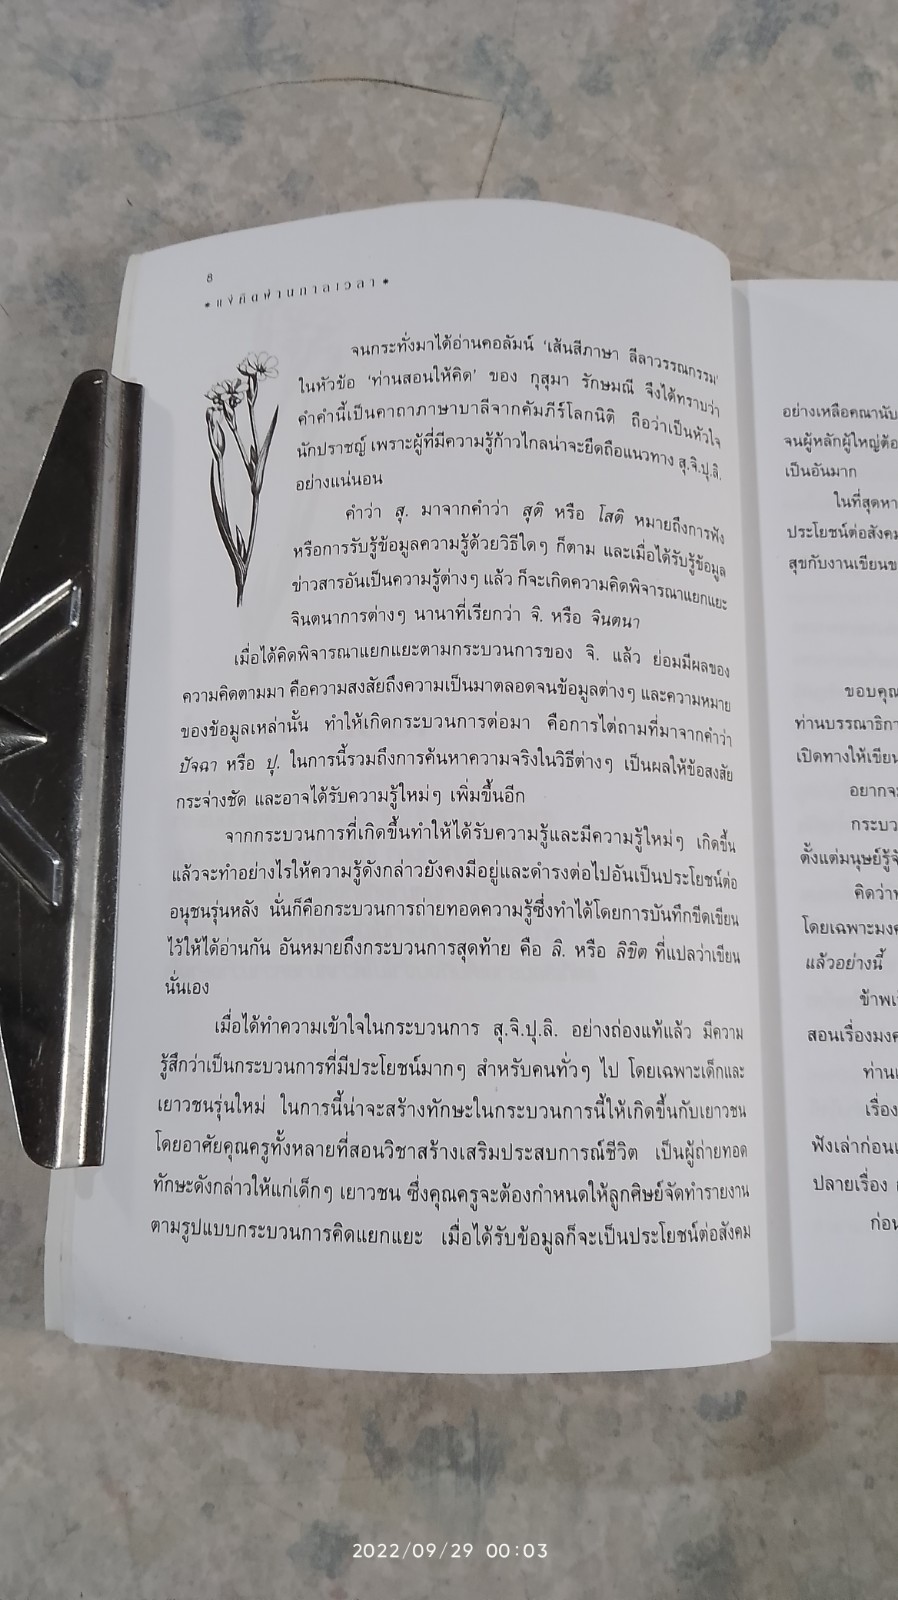 8
• แง่คิดผ่านกาลเวลา •
จนกระทั่งมาได้อ่านคอลัมน์ 'เส้นสีภาษา ลีลาวรรณกรรม'
ในหัวข้อ 'ท่านสอนให้คิด' ของ กุสุมา รักษมณี จึงได้ทราบว่า
คำคำนี้เป็นคาถาภาษาบาลีจากคัมภีร์โลกนิติ ถือว่าเป็นหัวใจ
นักปราชญ์ เพราะผู้ที่มีความรู้ก้าวไกลน่าจะยึดถือแนวทาง สุ.จิ.ปุ.ลิ.
อย่างแน่นอน
คำว่า สุ. มาจากคำว่า สุติ หรือ โสติ หมายถึงการฟัง
หรือการรับรู้ข้อมูลความรู้ด้วยวิธีใดๆ ก็ตาม และเมื่อได้รับรู้ข้อมูล
ข่าวสารอันเป็นความรู้ต่างๆ แล้ว ก็จะเกิดความคิดพิจารณาแยกแยะ
จินตนาการต่างๆ นานาที่เรียกว่า จิ. หรือ จินตนา
เมื่อได้คิดพิจารณาแยกแยะตามกระบวนการของ จิ. แล้ว ย่อมมีผลของ
ความคิดตามมา คือความสงสัยถึงความเป็นมาตลอดจนข้อมูลต่างๆ และความหมาย
ของข้อมูลเหล่านั้น ทำให้เกิดกระบวนการต่อมา คือการไต่ถามที่มาจากคำว่า
ปัจฉา หรือ ปุ. ในการนี้รวมถึงการค้นหาความจริงในวิธีต่างๆ เป็นผลให้ข้อสงสัย
กระจ่างชัด และอาจได้รับความรู้ใหม่ๆ เพิ่มขึ้นอีก
จากกระบวนการที่เกิดขึ้นทำให้ได้รับความรู้และมีความรู้ใหม่ๆ เกิดขึ้น
แล้วจะทำอย่างไรให้ความรู้ดังกล่าวยังคงมีอยู่และดำรงต่อไปอันเป็นประโยชน์ต่อ
อนุชนรุ่นหลัง นั่นก็คือกระบวนการถ่ายทอดความรู้ซึ่งทำได้โดยการบันทึกขีดเขียน
ไว้ให้ได้อ่านกัน อันหมายถึงกระบวนการสุดท้าย คือ ลิ. หรือ ลิขิต ที่แปลว่าเขียน
นั่นเอง
เมื่อได้ทำความเข้าใจในกระบวนการ สุ.จิ.ปุ.ลิ. อย่างถ่องแท้แล้ว มีความ
รู้สึกว่าเป็นกระบวนการที่มีประโยชน์มากๆ สำหรับคนทั่วๆ ไป โดยเฉพาะเด็กและ
เยาวชนรุ่นใหม่ ในการนี้น่าจะสร้างทักษะในกระบวนการนี้ให้เกิดขึ้นกับเยาวชน
โดยอาศัยคุณครูทั้งหลายที่สอนวิชาสร้างเสริมประสบการณ์ชีวิต เป็นผู้ถ่ายทอด
ทักษะดังกล่าวให้แก่เด็กๆ เยาวชน ซึ่งคุณครูจะต้องกำหนดให้ลูกศิษย์จัดทำรายงาน
ตามรูปแบบกระบวนการคิดแยกแยะ เมื่อได้รับข้อมูลก็จะเป็นประโยชน์ต่อสังคม
อย่างเหลือคณานับ
จนผู้หลักผู้ใหญ่ต้อ
เป็นอันมาก
ในที่สุดหา
ประโยชน์ต่อสังคม
สุขกับงานเขียนข
ขอบคุณ
ท่านบรรณาธิกา
เปิดทางให้เขียน
อยากจะ
กระบว
ตั้งแต่มนุษย์รู้จั
คิดว่าห
โดยเฉพาะมงค
แล้วอย่างนี้
ข้าพเจ้
สอนเรื่องมงค
ท่านเ
เรื่อง
ฟังเล่าก่อนเ
ปลายเรื่อง
ก่อน
2022/09/29 00:03